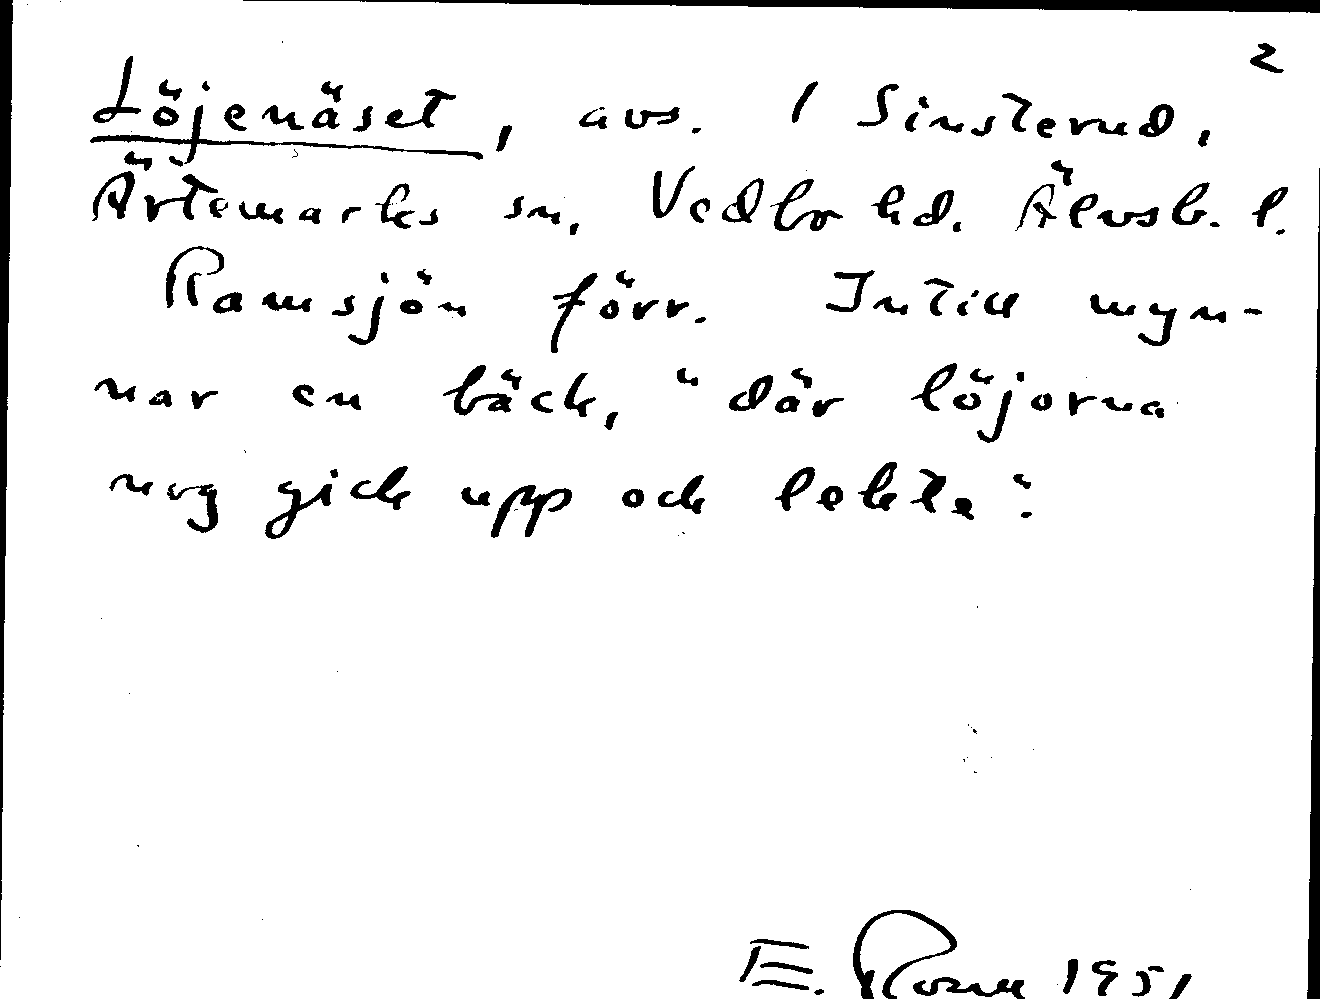 2
Löjenäset, avs. / Sinsterud,
Ärtemarks sn, Vedbo hd. Älvsb. l.
Ramsjön förr. Intill myn-
nar en bäck, "där löjorna
nog gick upp och lekte".
E. Rosell 1951